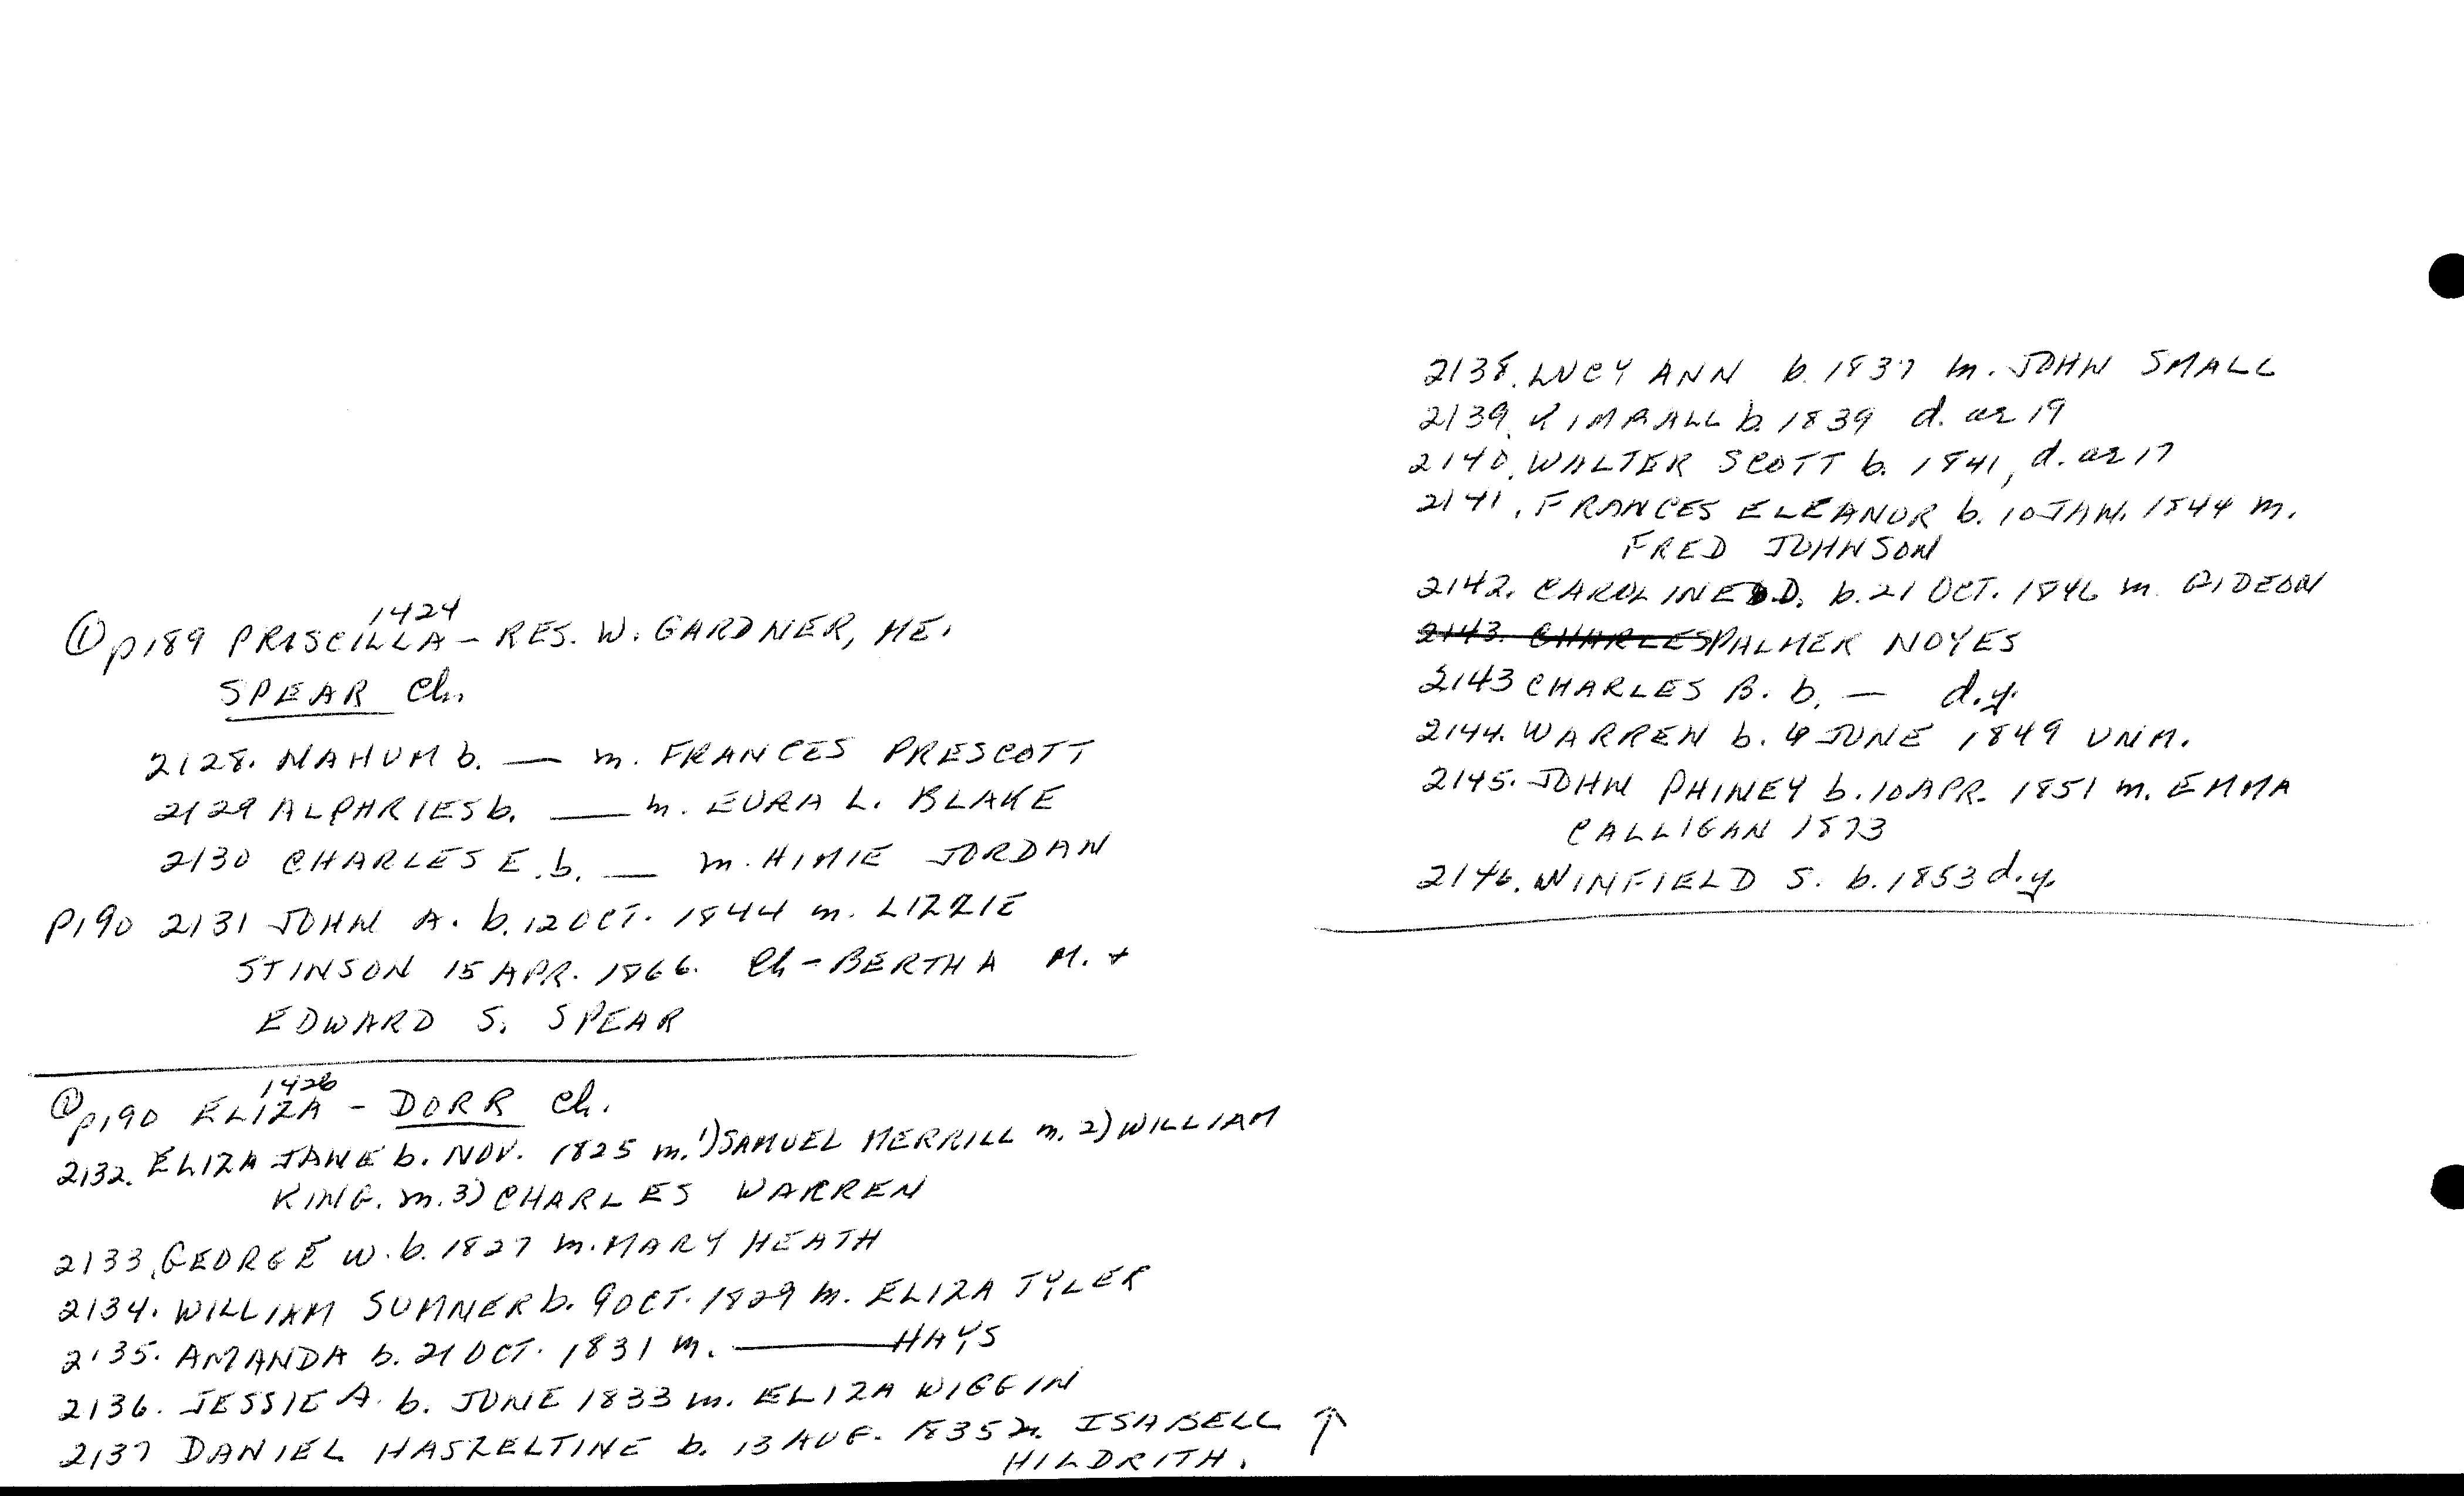 ① p189 PRISCILLA 1424 - RES. W. GARDNER, ME.
SPEAR Ch.
2128. NAHUM b. — m. FRANCES PRESCOTT
2129 ALPHRIES b. — m. EURA L. BLAKE
2130 CHARLES E. b. — m. HIMIE JORDAN
P190 2131 JOHN A. b. 12 OCT. 1844 m. LIZZIE
STINSON 15 APR. 1866. Ch - BERTHA M. +
EDWARD S. SPEAR
p190 ELIZA 1426 - DORR Ch.
2132. ELIZA JANE b. NOV. 1825 m. 1) SAMUEL MERRILL m. 2) WILLIAM
KING. m. 3) CHARLES WARREN
2133. GEORGE W. b. 1827 m. MARY HEATH
2134. WILLIAM SUMNER b. 9 OCT. 1829 m. ELIZA TYLER
2135. AMANDA b. 21 OCT. 1831 m. — HAYS
2136. JESSIE A. b. JUNE 1833 m. ELIZA WIGGIN
2137 DANIEL HASZELTINE b. 13 AUG. 1835 m. ISABELL ↑
HILDRITH.
2138. LUCY ANN b. 1837 m. JOHN SMALL
2139. KIMBALL b. 1839 d. ae 19
2140. WALTER SCOTT b. 1841, d. ae 17
2141. FRANCES ELEANOR b. 10 JAN. 1844 m.
FRED JOHNSON
2142. CAROLINE D. b. 21 OCT. 1846 m. GIDEON
2143. CHARLES PALMER NOYES
2143 CHARLES B. b. — d.y.
2144. WARREN b. 4 JUNE 1849 UNM.
2145. JOHN PHINEY b. 10 APR. 1851 m. EMMA
CALLIGAN 1873
2146. WINFIELD S. b. 1853 d.y.